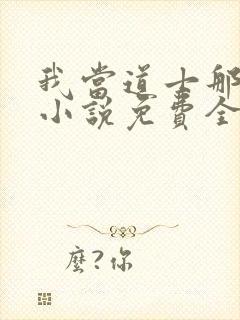 我當道士那
小說免費全
麼?你